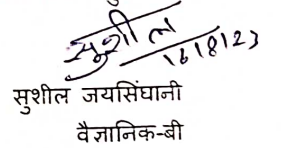 सुशील
16/8/23
सुशील जयसिंघानी
वैज्ञानिक-बी